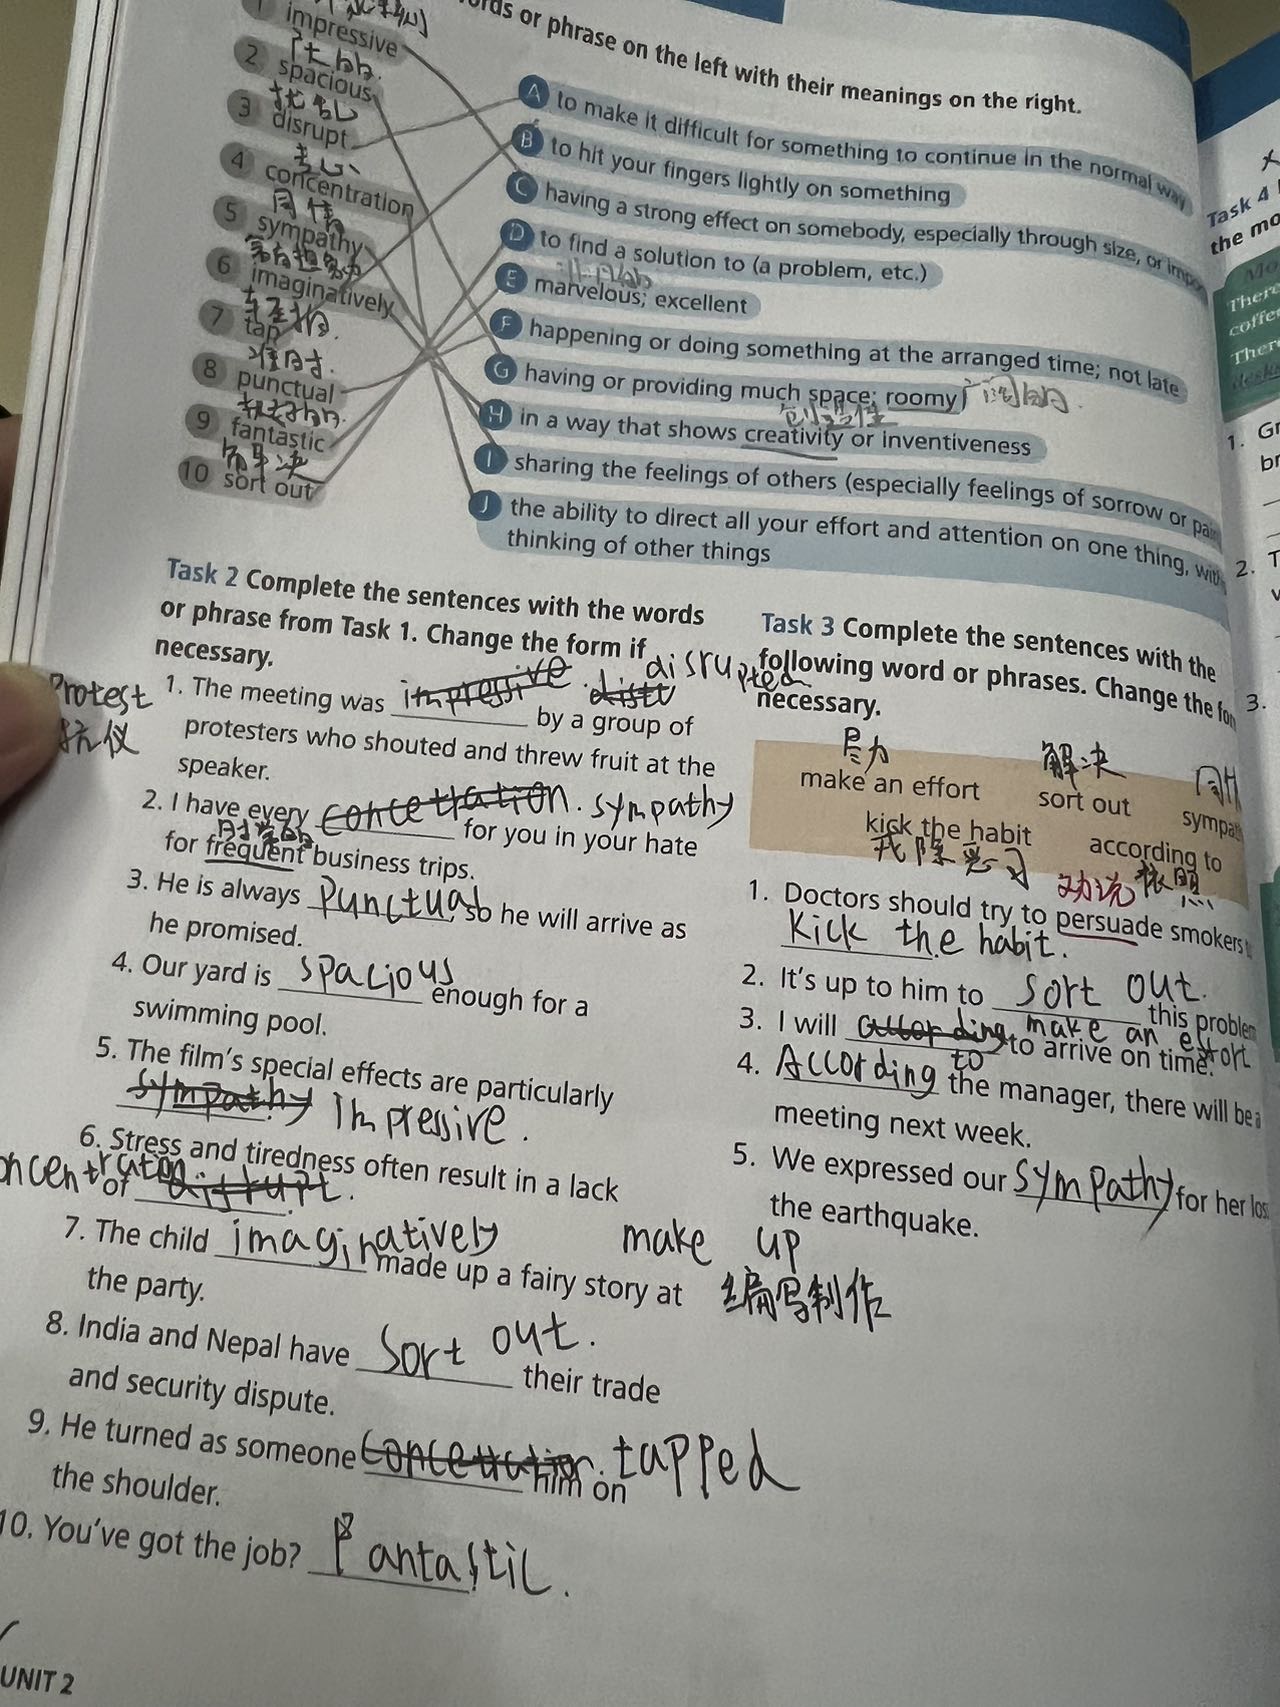 ords or phrase on the left with their meanings on the right.
1 impressive
2 spacious
扰乱
3 disrupt
专心
4 concentration
同情
5 sympathy
6 imaginatively
7 tap
准时.
8 punctual
9 fantastic
解决
10 sort out
A to make it difficult for something to continue in the normal way
B to hit your fingers lightly on something
C having a strong effect on somebody, especially through size, or impo
D to find a solution to (a problem, etc.)
E marvelous; excellent
F happening or doing something at the arranged time; not late
G having or providing much space; roomy
创造性
H in a way that shows creativity or inventiveness
I sharing the feelings of others (especially feelings of sorrow or pain
J the ability to direct all your effort and attention on one thing, with
thinking of other things
Task 2 Complete the sentences with the words
or phrase from Task 1. Change the form if
necessary.
Protest
抗议
1. The meeting was impressive distu disrupted by a group of
protesters who shouted and threw fruit at the
speaker.
2. I have every concetration. sympathy for you in your hate
for frequent business trips.
3. He is always punctual, so he will arrive as
he promised.
4. Our yard is spacious enough for a
swimming pool.
5. The film's special effects are particularly
sympathy impressive.
6. Stress and tiredness often result in a lack
of oncentration disrupt.
7. The child imaginatively made up a fairy story at
the party.
make up
编写制作
8. India and Nepal have sort out. their trade
and security dispute.
9. He turned as someone concetration. tapped him on
the shoulder.
10. You've got the job? Fantastic.
UNIT 2
Task 3 Complete the sentences with the
following word or phrases. Change the for
necessary.
尽力 解决
make an effort sort out sympat
kick the habit according to
戒除恶习 依照
劝说
1. Doctors should try to persuade smokers t
kick the habit.
2. It's up to him to sort out. this problem
3. I will according make an effort to arrive on time.
4. According to the manager, there will be a
meeting next week.
5. We expressed our sympathy for her los
the earthquake.
Task 4
the mo
Mo
There
coffe
Ther
desks
1. Gr
br
2. T
v
3.